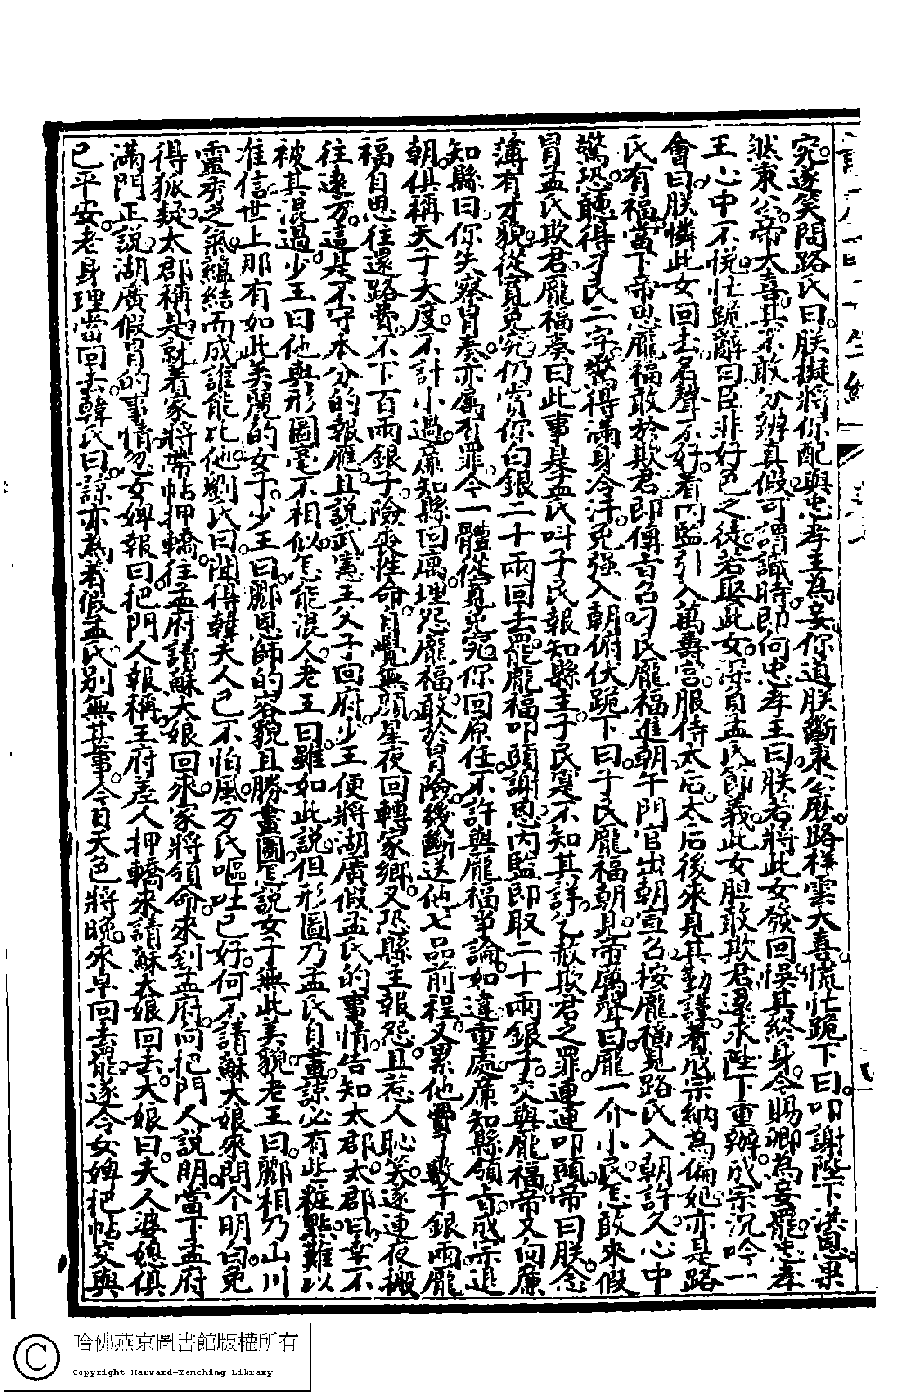 究遂笑問路氏曰朕擬將你配與忠孝王為妾你道朕斷來公麽路祥雲大喜慌忙跪下曰叩謝陛下洪恩果
然秉公帝大喜其不敢分辨真假可謂識時即向忠孝王曰朕若將此女發回悞其終身今賜卿為妾罷忠孝
王心中不悅忙跪辭曰臣非好色之徒若娶此女深負孟氏節義此女胆敢欺君還求陛下重辦成宗沉吟一
會曰朕憐此女回去名聲不好着內監引入萬壽宮服侍太后太后後來見其勤謹着成宗納為偏妃亦是路
氏有福當下帝思龐福敢於欺君即傳旨召刁氏龐福進朝午門官出朝宣召按龐福見路氏入朝許久心中
驚恐聽得刁民二字驚得滿身冷汗免強入朝俯伏跪下曰子民龐福朝見帝厲聲曰龐一介小民怎敢來假
冒孟氏欺君龐福奏曰此事是孟氏叫子民報知縣主子民寔不知其詳乞赦欺君之罪連連叩頭帝曰朕念
溝有才貌從寬免究仍賞你白銀二十兩回去罷龐福叩頭謝恩內監即取二十兩銀子交與龐福帝又向廉
知縣曰你失察冒奏亦屬有罪今一體從寬免究你回原任不許與龐福爭論如違重處廉知縣領旨成宗退
朝俱稱天子大度不計小過廉知縣回寓埋怨龐福敢於冒險幾斷送他七品前程又累他費了數千銀兩龐
福自思往還路費不下百兩銀子險喪性命自覺無顏星夜回轉家鄉又恐縣主報怨且惹人恥笑遂連夜搬
往遠方這是不守本分的報應且說武憲王父子回府少王便將湖廣假孟氏的事情告知太郡太郡曰幸不
被其混過少王曰他與形圖毫不相似怎能混人老王曰雖如此說但形圖乃孟氏自畫諒必有些粧點難以
准信世上那有如此美麗的女子少王曰酈恩師的容貌且勝畫圖怎說女子無此美貌老王曰酈相乃山川
靈秀之氣蘊結而成誰能比他劉氏曰陞得韓夫人已不怕風方氏嘔吐已好何不請蘇大娘來問个明白免
得狐疑太郡稱是就着家將帶帖押轎往孟府請蘇大娘回來家將領命來到孟府向把門人說明當下孟府
滿門正說湖廣假冒的事情忽女婢報曰把門人報稱王府差人押轎來請蘇大娘回去大娘曰夫人婆媳俱
已平安老身理當回去韓氏曰諒亦為着假孟氏別無甚事今日天色將晚來早回去罷遂令女婢把帖交與
哈佛燕京圖書館版權所有
Copyright Harvard-Yenching Library